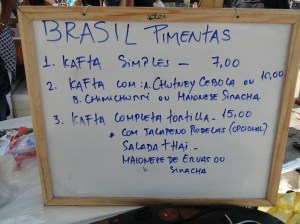 BRASIL PIMENTAS
1. KAFTA SIMPLES - 7,00
2. KAFTA COM: A. CHUTNEY CEBOLA OU 10,00
B. CHIMICHURRI OU MAIONESE SIRACHA
3. KAFTA COMPLETA TORTILLA - 15,00
• COM JALAPENO RODELAS (OPCIONAL)
SALADA THAI -
MAIONESE DE ERVAS OU
" SIRACHA